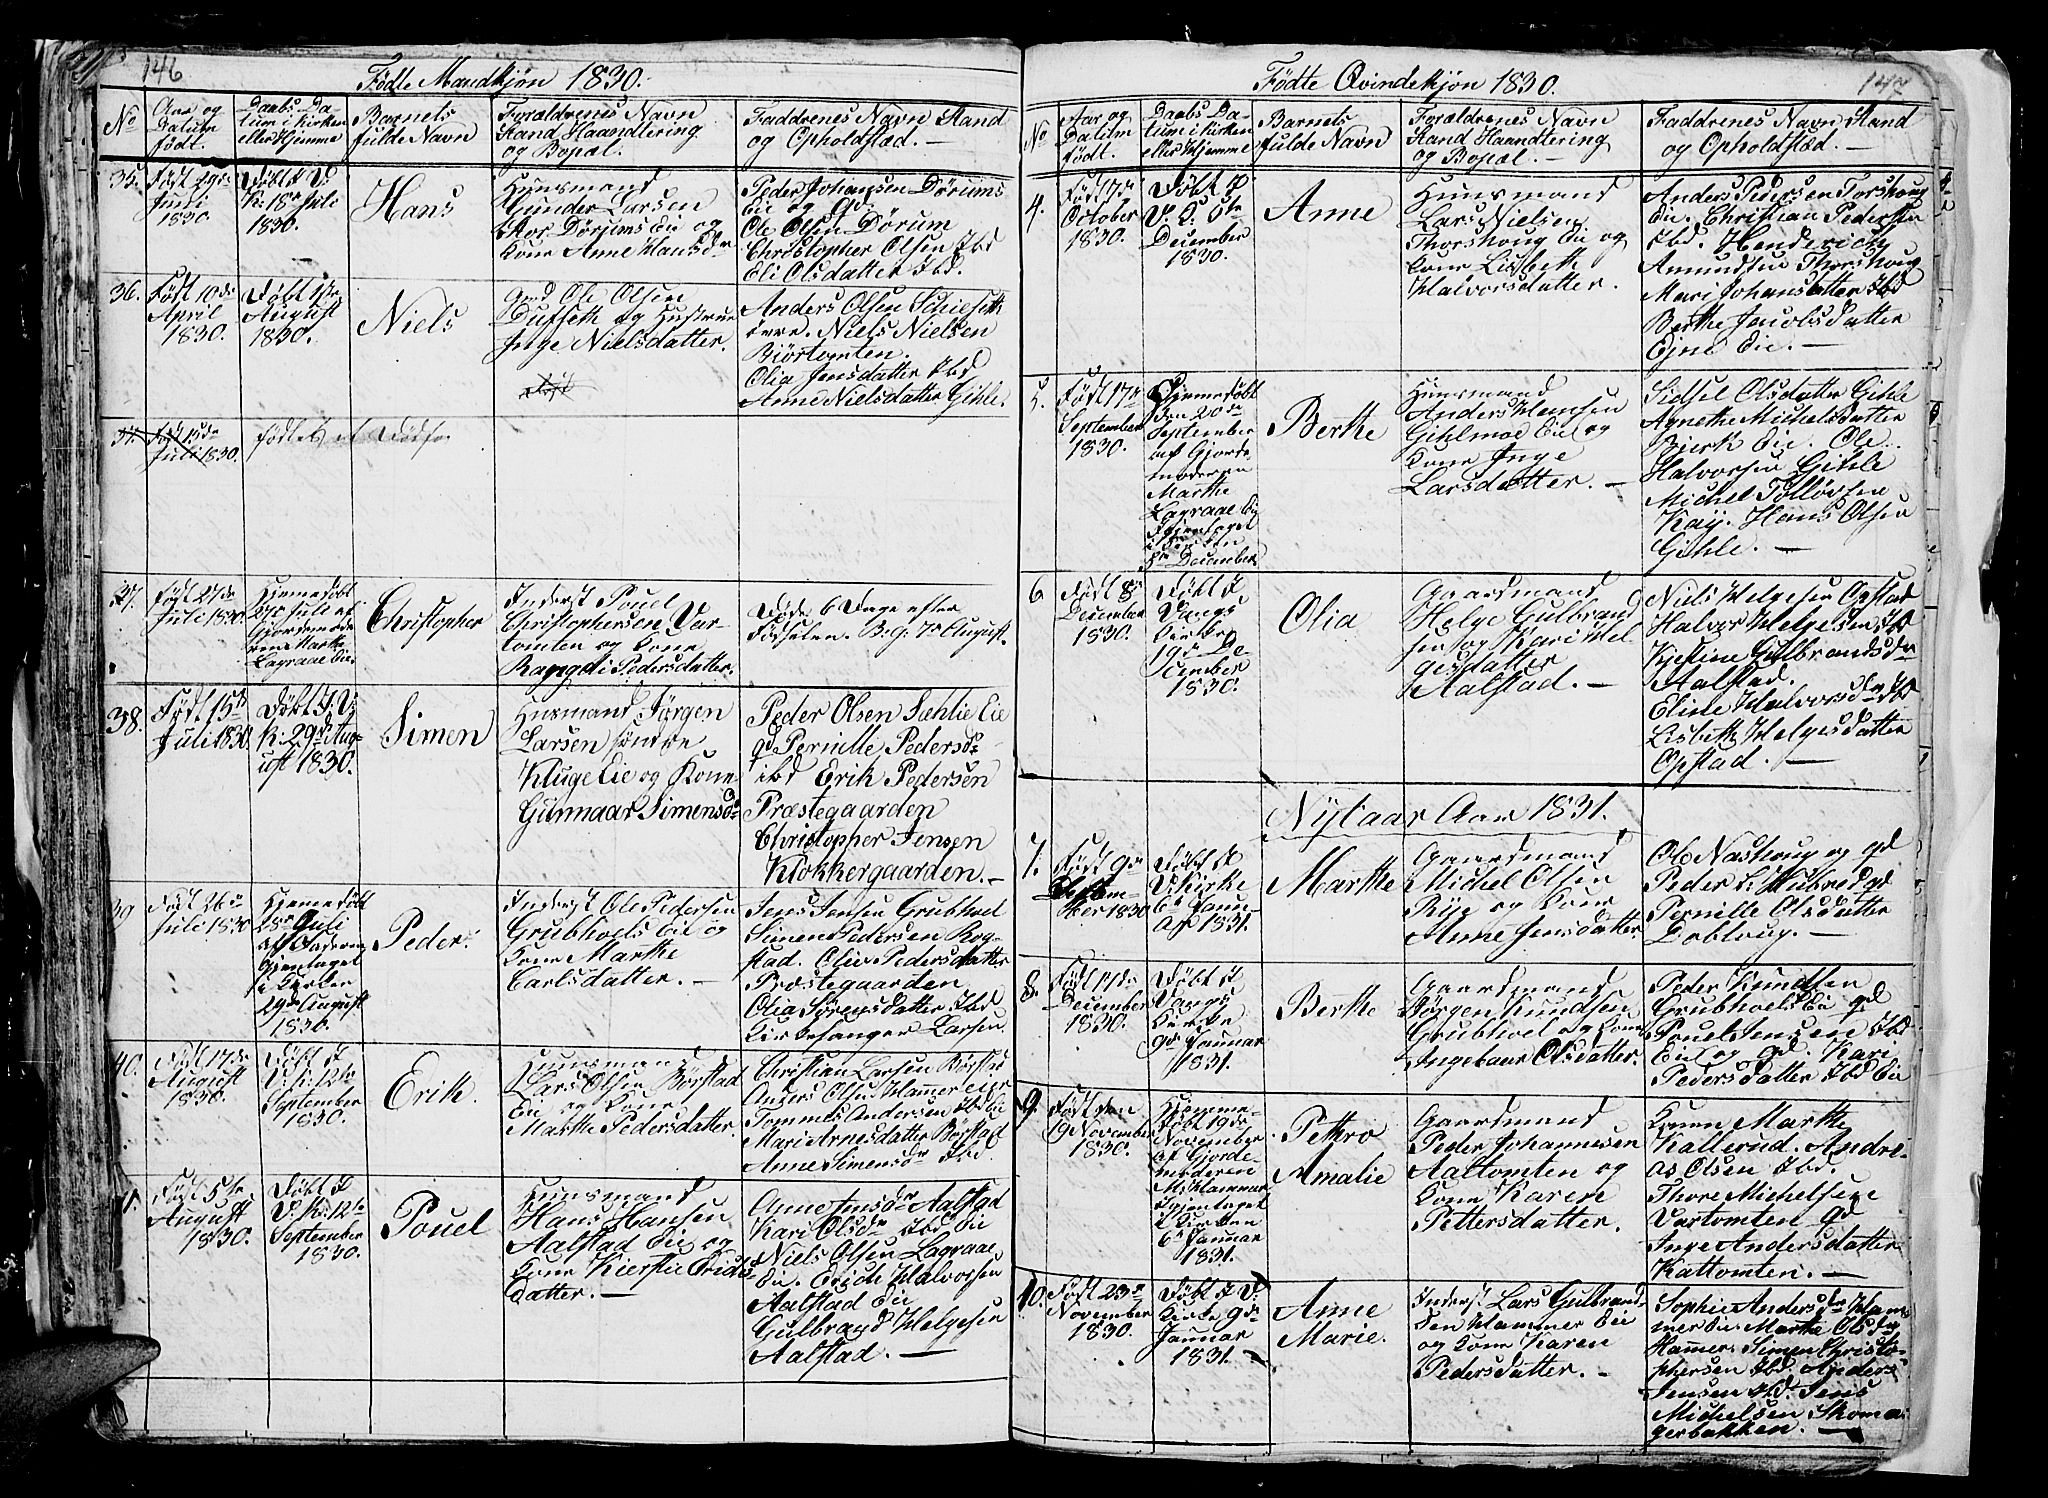 146
Fødte Mandkjøn 1830.
No
Aar og
Datum
født.
Daabs Da-
tum i Kirken
eller Hjemme
Barnets
fulde Navn
Forældrenes Navn
Stand Haandtering
og Bopæl.
Faddrenes Navn Stand
og Opholdsted. —
35.
Født 29de
Juni
1830.
Døbt I V.
K: 18de Julie
1830.
Hans
Huusmand
Gunder Larsen
Stor Dørums Eie og
Kone Anne Hansdr
Peder Johansen Dørums
Eie og Gd.
Ole Olsen Dørum
Christopher Olsen Ibd
Eli Olsdatter Ibd.
36.
Født 10de
April
1830.
Døbt 1ste
August
1830.
Niels
Gmd Ole Olsen
og Hustrue
Inge Nielsdatter.
Anders Olsen
Niels Nielsen
Biørtomten.
Olia Jensdatter Ibd
Anne Nielsdatter Gihle.
37.
Født 15de
Juli 1830.
37.
Født 27de
Juli 1830.
Hjemedøbt
Juli af
Gjordemode
ren Marthe
Lagraae Eie.
Christopher
Inderst Pouel
Christophersen Var-
tomten og Kone
Rangdi Pedersdatter.
Døde 6 Dage efter
Fødselen. B. g: 7de August.
38.
Født 15de
Juli 1830.
Døbt I. V.
K: 29de Aug-
ust 1830.
Simen
Husmand Jørgen
Larsen søndre
Kluge Eie og Kone
Gunmaar Simensd.
Peder Olsen Sæhlie Eie
gd Pernille Pedersd.
ibd Erik Pedersen
Præstegaarden
Christopher Jensen
Klokkergaarden. —
39
Født 26de
Juli 1830
Hjemedøbt
28de Juli
af Faderen
Gjentaget
i Kirken
29de August
1830.
Peder.
Inderst Ole Pedersen
Grubhols Eie og
Kone Marthe
Carlsdatter. —
Jens Jensen Grubhoel
Simen Pedersen Rog-
stad. Olive Pedersdatter
Præstegaarden
Olia Sørensdatter Ibd
Kirkesanger Larsen.
40.
Født 17de
August
1830.
Døbt I
V. K: 12te
September
1830.
Erik.
Huusmand
Lars Olsen Børstad
Eie og Kone
Marthe Pedersdatter.
Christian Larsen Børstad
Anders Olsen Hammer eie
Tommes Andersen Ibd Eie
Mari Arnesdatter Børstad
Anne Simensdr Ibd.
41.
Født 5te
August
1830.
Døbt I
V. K: 12te
September
1830.
Pouel
Huusmand
Hans Hansen
Aalstad Eie og
Kone Kierstie Erichs
datter. —
Anne Jensdr Aalstad
Kari Olsdr Ibd Eie
Niels Olsen Lagraae
Eie. Erich Halvorsen
Aalstad Eie
Gulbrand Helgesen
Aalstad. —
147
Fødte Qvindekjøn 1830.
No
Aar og
Datum
født.
Daabs Da-
tum i Kirken
eller Hjemme
Barnets
fulde Navn
Forældrenes Navn
Stand Haandtering
og Bopæl. —
Faddrenes Navn Stand
og Opholdsted. —
4.
Født 17de
October
1830.
Døbt I
V. K. 6te
December
1830.
Anne
Huusmand
Lars Nielsen
Thorshoug Eie og
Kone Lisbeth
Halvorsdatter.
Anders Pedersen Torshoug
Eie. Christian Pedersen
Ibd. Henderich
Amundsen Thorshoug
Mari Johansdatter Ibd
Berthe Jacobsdatter
Ejne Eie. —
5.
Født 17de
September
1830.
Hjemedøbt
den 20de
September
af Gjorde
moderen
Marthe
Lagraae Eie
Gjentaget
i Kirken
December
Berthe
Huusmand
Anders Hansen
Gihlmoe Eie og
Kone Inge
Larsdatter. —
Sidsel Olsdatter Gihle
Agnethe Michelsdatter
Bjerk Eie. Ole
Halvorsen Gihle
Michel Tolløvsen
Kaÿ. Hans Olsen
Gihle. —
6
Født 8de
December
1830.
Døbt I
Vangs
Kirke
19de De-
cember
1830.
Olia
Gaardmand
Helge Gulbrand
sen og Kari Hel
gesdatter
Aalstad. —
Niels Helgesen Opstad
Halvor Helgesen Ibd
Kjestine Gulbrandsdr
Aalstad.
Eline Halvorsdr Ibd
Lisbeth Helgesdatter
Opstad. —
Nytaar Aar 1831.
7.
Født 9de
ber 1830
Døbt I
V. Kirke
6te Janu-
ar 1831.
Marthe
Gaardmand
Michel Olsen
Rÿe og Kone
Anne Jensdatter.
Ole Nashoug og gd
Peder L: Hubred gd
Pernille Olsdatter
Dobloug. —
8.
Født 14de
December
1830.
Døbt I
Vangs
Kirke
9de Januar
1831.
Berthe
Gaardmand
Børgen Knudsen
Grubhoel og Kone
Ingebaar Olsdatter.
Peder Knudsen
Grubhoels Eie gd
Pouel Jensen Ibd
Eie og gd. Kari
Pedersdatter Ibd Eie
9.
Født den
19 November
1830.
Hjemme-
døbt 19de
November
af Gjorde-
moderen
M: Hammer
Gjentaget
i Kirken
6te Januar
1831.
Pethro
Amalie
Gaardmand
Peder Johannesen
Aaltomten og
Kone Karen
Pettersdatter.
Konen Marthe
Kallerud. Andre-
as Olsen Ibd.
Thore Michelsen
Vartomten gd
Inge Andersdatter
Kattomten. —
10.
Født 23de
November
1830.
Døbt I V:
Kirke 9de
Januar
1831.
Anne
Marie.
Inderst Lars Gulbrand-
sen Hammer Eie
og Kone Karen
Pedersdatter. —
Sophie Andersdr Ham
mer Eie. Marthe Olsdr
Hamer. Simen Christo-
phersen Ibd. Anders
Jensen Ibd. Jens
Michelsen Skoma-
gerbakken. —